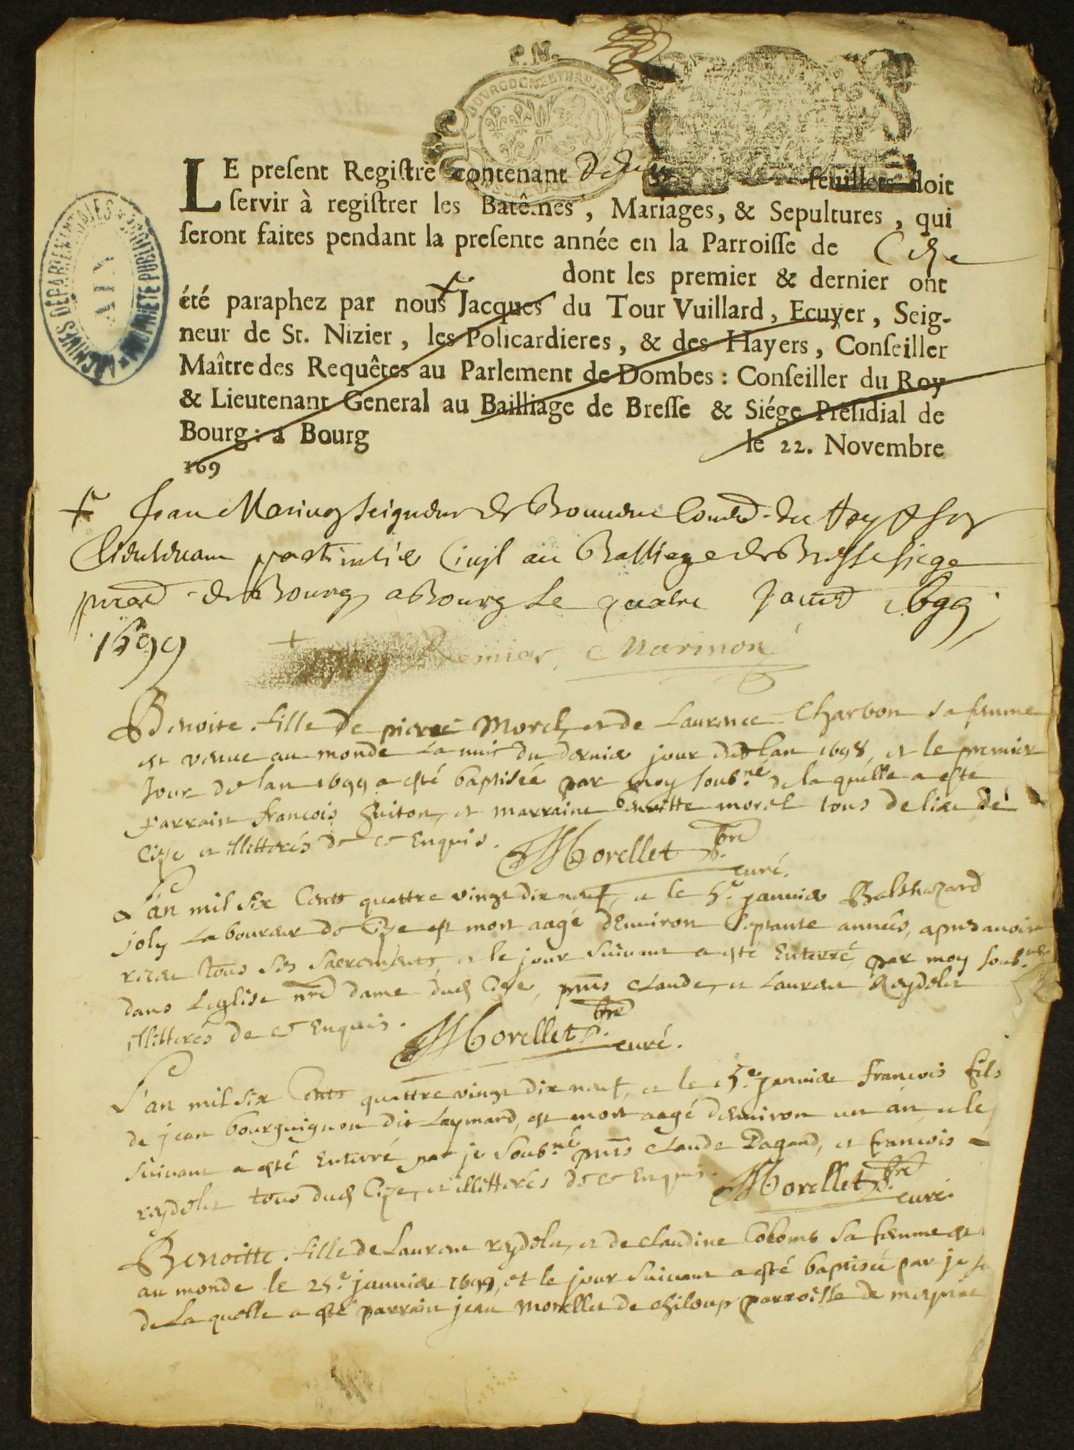 P.N.
BOURGOGNE ET BRESSE
ARCHIVES DÉPARTEMENTALES
AIN
PROPRIÉTÉ PUBLIQUE
LE present Registre contenant feuillets doit
servir à registrer les Batêmes, Mariages, & Sepultures, qui
seront faites pendant la presente année en la Parroisse de Cize
dont les premier & dernier ont
été paraphez par nous Jacques du Tour Vuillard, Ecuyer, Seig-
neur de St. Nizier, les Policardieres, & des Hayers, Conseiller
Maître des Requêtes au Parlement de Dombes : Conseiller du Roy
& Lieutenant General au Bailliage de Bresse & Siége Présidial de
Bourg : a Bourg le 22. Novembre
169
Jean Marinon seigneur de du Roy
particulier Civil au Balliage de Bresse siege
de Bourg a Bourg le quatre 1699
1699
Premier, Marinon
Benoite fille de pierre Morel, et de Laurence Charbon sa femme
est venue au monde la nuit du dernier jour de lan 1698, et le premier
jour de lan 1699 a esté baptisée par moy soubné de laquelle a este
parrain françois guiton, et marraine benoitte morel tous de
Cize et illitterés de ce Enquis. Morellet pbre
curé.
L'an mil six Cents quattre vingt dix neuf, et le 5e janvier Balthazard
joly laboureur de Cize est mort aagé d'Environ septante années, apres avoir
receu tous ses sacrements, et le jour suivant a esté Enterré par moy soubné
dans l'eglise nre dame dud Cize, pnts Claude, et Laurent Reydelet
illitterés de ce Enquis. Morellet pbre
curé.
L'an mil six Cents quattre vingt dix neuf, et le janvier françois fils
de jean bourguignon dit Laymard, est mort aagé d'environ un an et le
suivant a esté Enterré par je soubné pnts Claude Pagand, et françois
reydelet tous dud Cize, et illitterés de ce Enquis. Morellet pbre
curé.
Benoitte fille de Laurent reydelet, et de Claudine Colomb sa femme est
au monde le 25e janvier 1699, et le jour suivant a esté baptisée par je
de laquelle a esté parrain jean Morellet de chiloup parroisse de